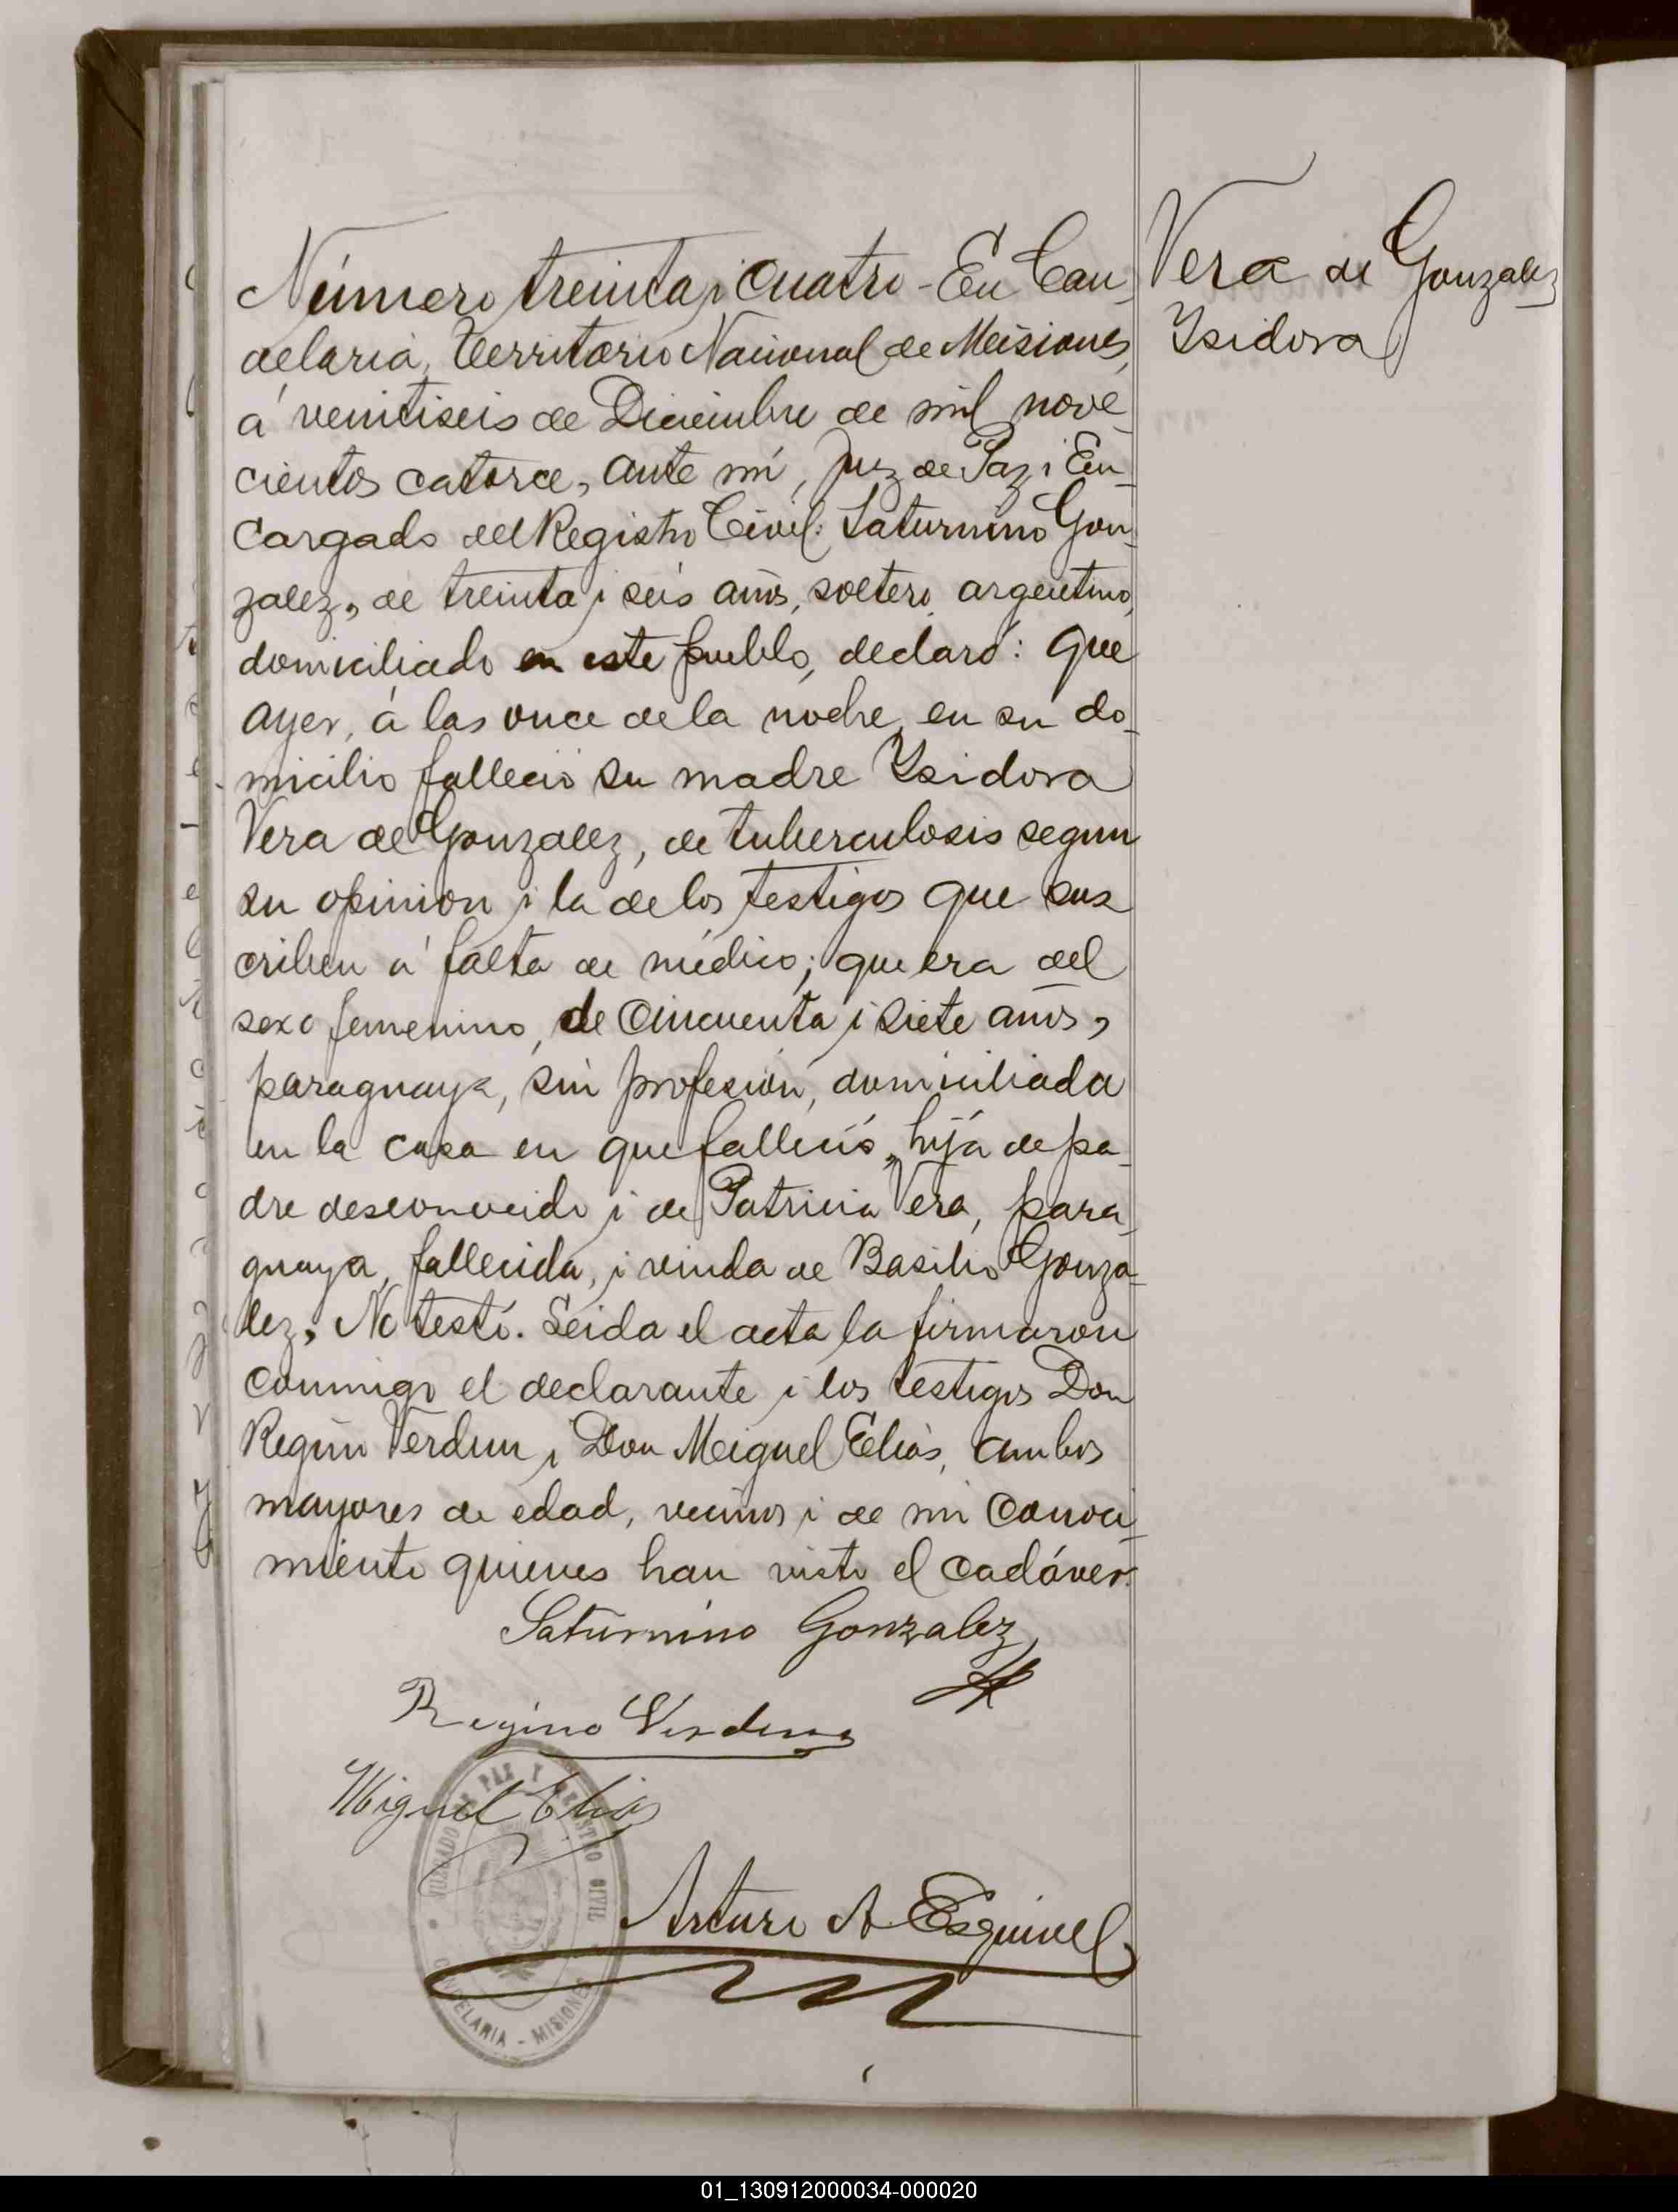 Vera de Gonzalez
Ysidora
Número treinta i cuatro - En Can-
delaria, Territorio Nacional de Misiones,
á veintiseis de Diciembre de mil nove-
cientos catorce, ante mí, Juez de Paz i En-
cargado del Registro Civil: Saturnino Gon-
zalez, de treinta i seis años, soltero, argentino,
domiciliado en este pueblo, declaró: Que
ayer, á las once de la noche, en su do-
micilio falleció su madre Ysidora
Vera de Gonzalez, de tuberculosis segun
su opinion i la de los testigos que sus-
criben á falta de médico; que era del
sexo femenino, de cincuenta i siete años,
paraguaya, sin profesión, domiciliada
en la casa en que falleció, hija de pa-
dre desconocido i de Patricia Vera, para-
guaya, fallecida, i viuda de Basilio Gonza-
lez, No testó. Leida el acta la firmaron
conmigo el declarante i los testigos Don
Regino Verdun i Don Miguel Elias, ambos
mayores de edad, vecinos i de mi conoci-
miento quienes han visto el cadáver.
Saturnino Gonzalez
Regino Verdun
Miguel Elias
JUZGADO DE PAZ Y REGISTRO CIVIL
CANDELARIA - MISIONES
Arturo A Esquivel
01_130912000034-000020